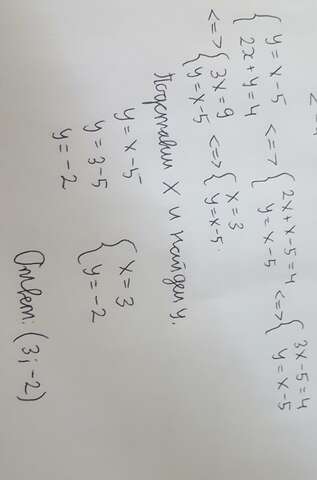 { y = x - 5
{ 2x + y = 4
<=> { 2x + x - 5 = 4
{ y = x - 5
<=> { 3x - 5 = 4
{ y = x - 5
<=> { 3x = 9
{ y = x - 5
<=> { x = 3
{ y = x - 5.
Подставим x и найдём y.
y = x - 5
y = 3 - 5
y = -2
{ x = 3
{ y = -2
Ответ: (3; -2)